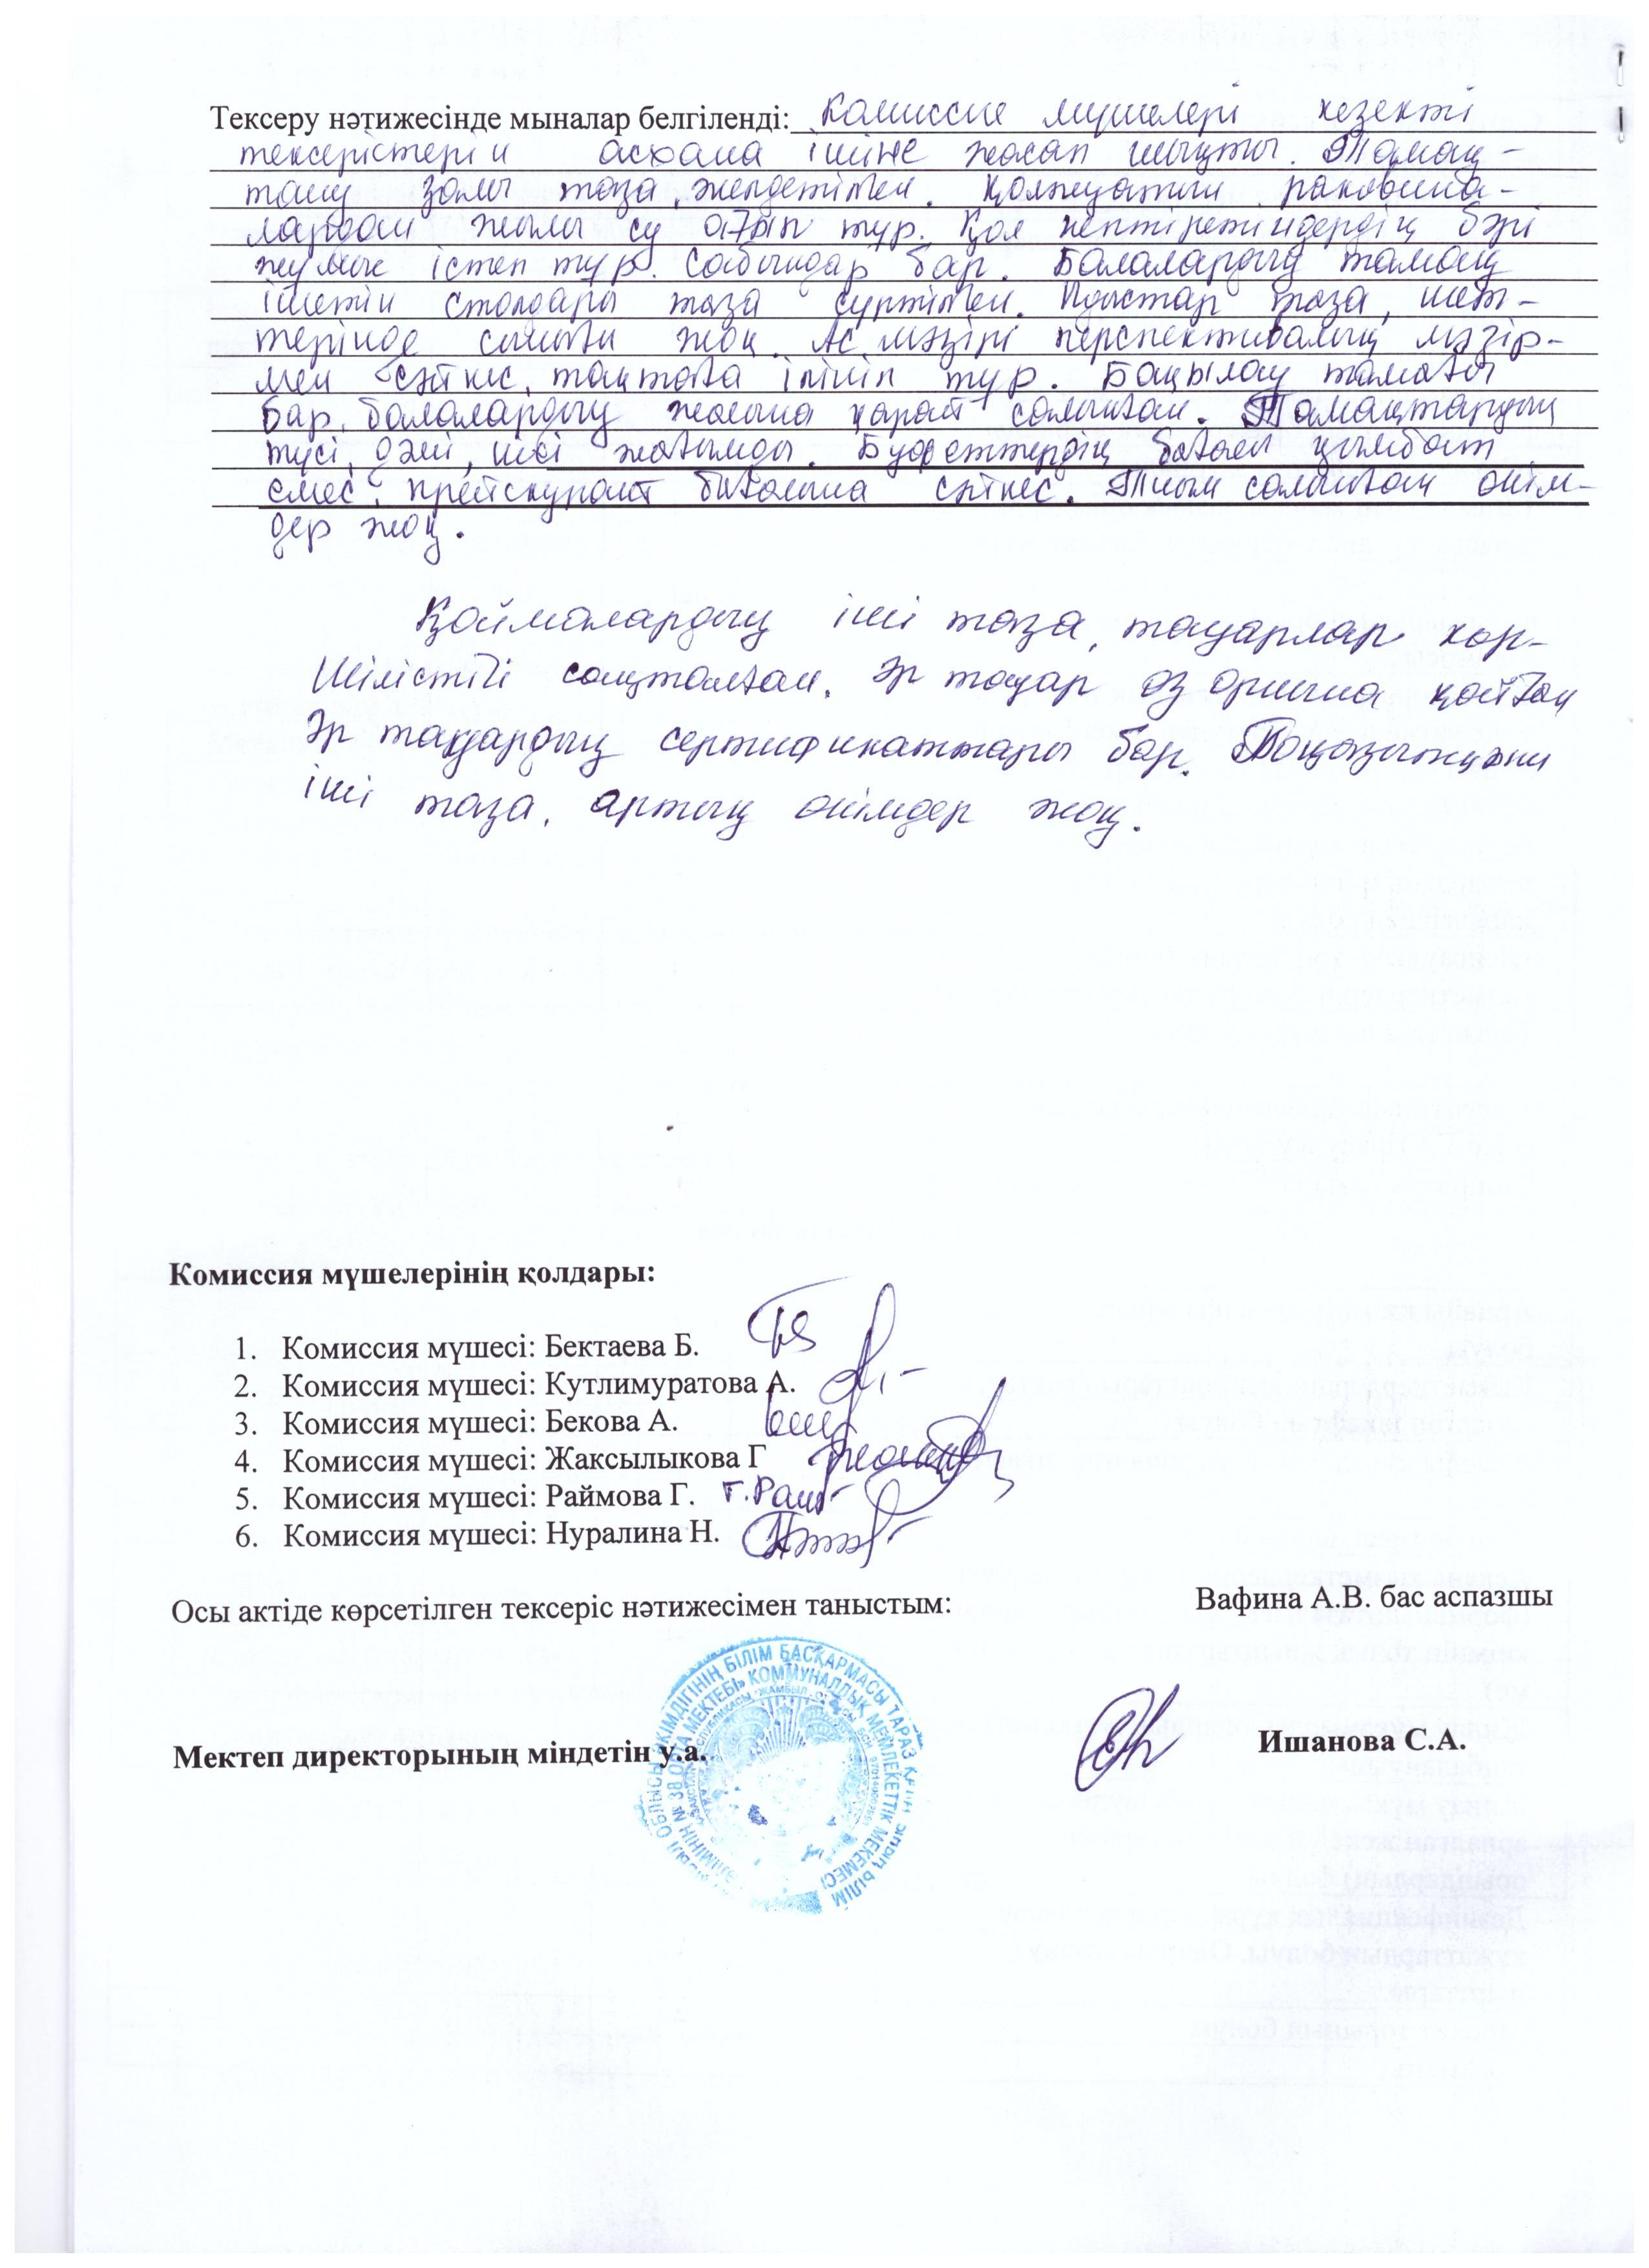 Тексеру нәтижесінде мыналар белгіленді: Комиссия мүшелері кезекті
тексерістерін асхана ішіне жасап шықты. Тамақ-
тану залы таза, желдетілген. Қолжуатын раковина-
лардан жылы су ағып тұр. Қол кептіретіндердің бәрі
жұмыс істеп тұр. Сабындар бар. Балалардың тамақ
ішетін столдары таза сүртілген. Ыдыстар таза, шет-
терінде сынығы жоқ. Ас мәзірі перспективалық мәзір-
мен сәйкес, тақтаға ілініп тұр. Бақылау тамағы
бар, балалардың жасына қарай салынған. Тамақтардың
түсі, дәмі, иісі жағымды. Буфеттердің бағасы қымбат
емес, прейскурант бағасына сәйкес. Тиым салынған өнім-
дер жоқ.
Қоймалардың іші таза, тауарлар көр-
шілестігі сақталған. Әр тауар өз орнына қойған
Әр таудардың сертификаттары бар. Тоңазытқыш
іші таза, артық өнімдер жоқ.
Комиссия мүшелерінің қолдары:
1. Комиссия мүшесі: Бектаева Б.
2. Комиссия мүшесі: Кутлимуратова А.
3. Комиссия мүшесі: Бекова А.
4. Комиссия мүшесі: Жаксылыкова Г
5. Комиссия мүшесі: Раймова Г. Г.Раим
6. Комиссия мүшесі: Нуралина Н.
Осы актіде көрсетілген тексеріс нәтижесімен таныстым: Вафина А.В. бас аспазшы
ӘКІМДІГІНІҢ БІЛІМ БАСҚАРМАСЫ ТАРАЗ ҚАЛАСЫ БІЛІМ
№ 38 ОРТА МЕКТЕБІ» КОММУНАЛДЫҚ МЕМЛЕКЕТТІК МЕКЕМЕСІ
Мектеп директорының міндетін у.а. Ишанова С.А.